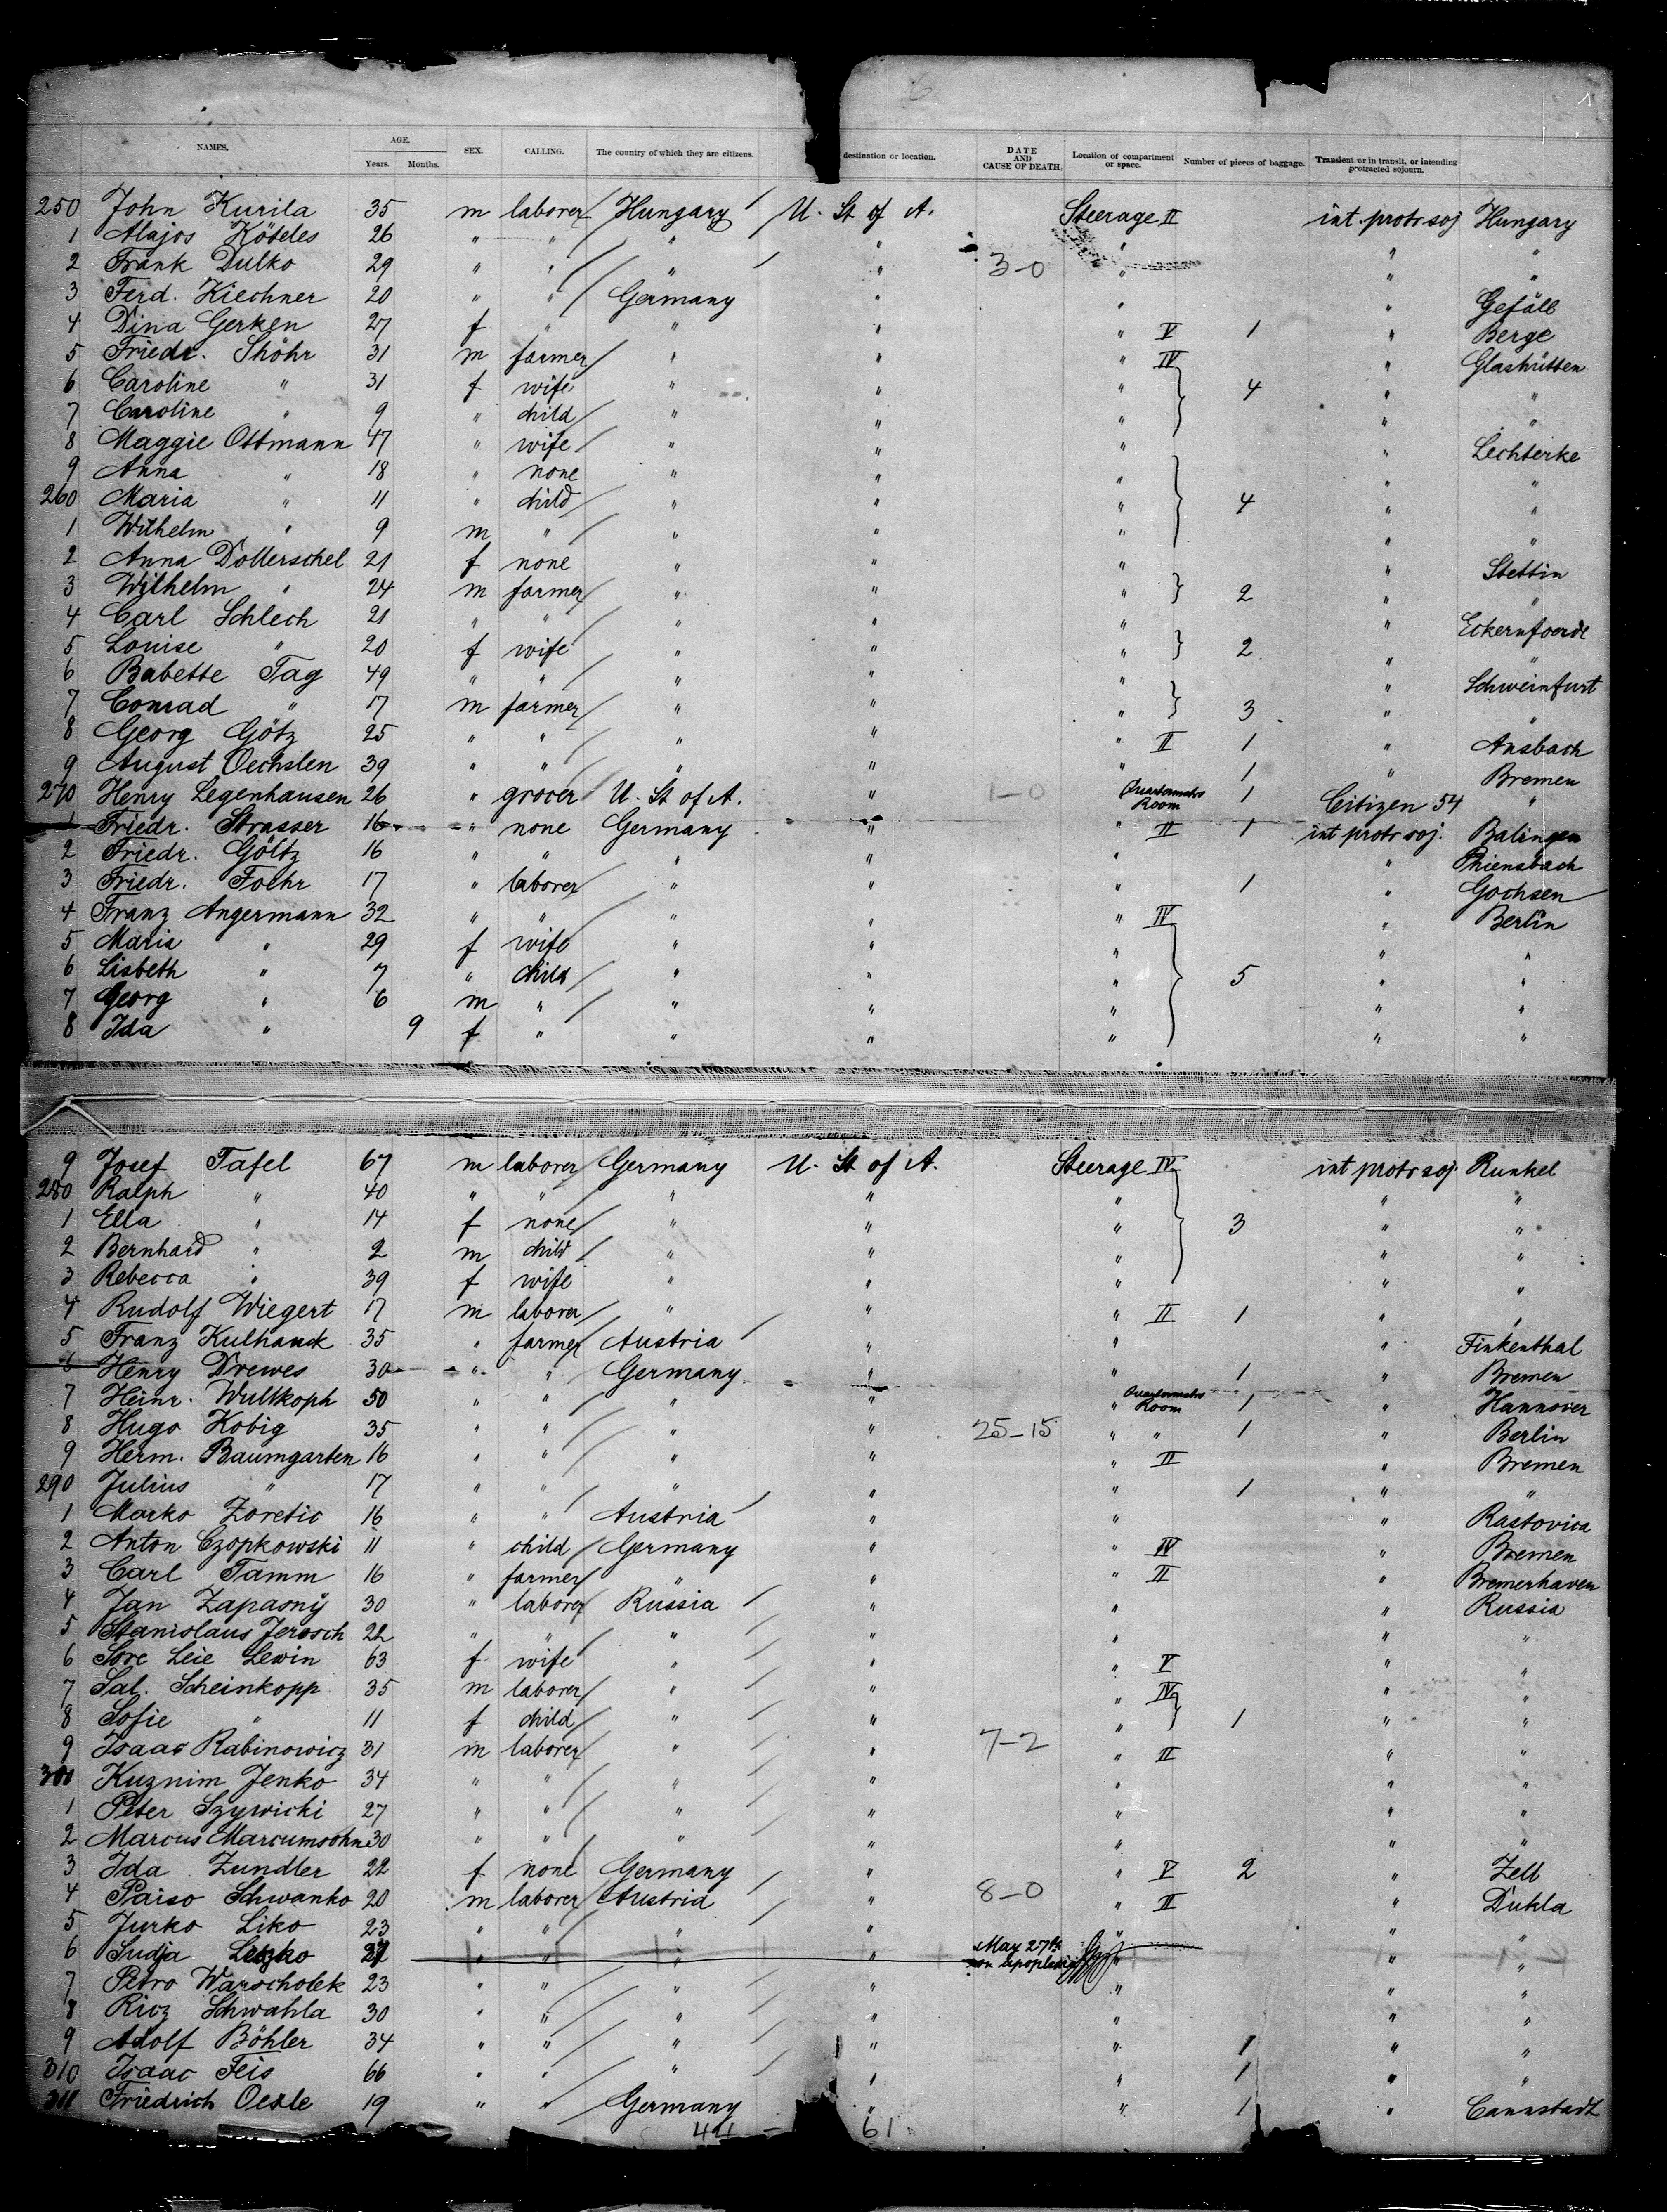 NAMES. AGE. Years. Months. SEX. CALLING. The country of which they are citizens. destination or location. DATE AND CAUSE OF DEATH. Location of compartment or space. Number of pieces of baggage. Transient or in transit, or intending protracted sojourn.
250 John Kurila 35 m laborer Hungary U. St of A. Steerage II int. protr soj Hungary
1 Alajos Köteles 26 " " " " " " "
2 Frank Dulko 29 " " " " 3-0 " " "
3 Ferd. Kiechner 20 " " Germany " " " Gefäll
4 Dina Gerken 27 f " " " " V 1 " Berge
5 Friedr. Shöhr 31 m farmer " " " IV " Glashütten
6 Caroline " 31 f wife " " " 4 " "
7 Caroline " 9 " child " " " " "
8 Maggie Ottmann 47 " wife " " " " Lechterke
9 Anna " 18 " none " " " " "
260 Maria " 11 " child " " " 4 " "
1 Wilhelm " 9 m " " " " " "
2 Anna Dollerschel 21 f none " " " " Stettin
3 Wilhelm " 24 m farmer " " " 2 " "
4 Carl Schlech 21 " " " " " " Eckernfoerde
5 Louise " 20 f wife " " " 2 " "
6 Babette Tag 49 " " " " " " Schweinfurt
7 Conrad " 17 m farmer " " " 3 " "
8 Georg Götz 25 " " " " " II 1 " Ansbach
9 August Oechslen 39 " " " " " 1 " Bremen
270 Henry Legenhausen 26 " grocer U. St of A. " 1-0 Quartermstrs Room 1 Citizen 54 "
1 Friedr. Strasser 16 " none Germany " " II 1 int protr soj. Balingen
2 Friedr. Göltz 16 " " " " " " Phiensbach
3 Friedr. Foehr 17 " laborer " " " 1 " Gochsen
4 Franz Angermann 32 " " " " " IV " Berlin
5 Maria " 29 f wife " " " " "
6 Lisbeth " 7 " child " " " 5 " "
7 Georg " 6 m " " " " " "
8 Ida " 9 f " " " " " "
9 Josef Tafel 67 m laborer Germany U. St of A. Steerage IV int protr soj. Runkel
280 Ralph " 40 " " " " " " "
1 Ella " 14 f none " " " 3 " "
2 Bernhard " 2 m child " " " " "
3 Rebecca " 39 f wife " " " " "
4 Rudolf Wiegert 17 m laborer " " " II 1 " "
5 Franz Kulhanek 35 " farmer Austria " " " Finkenthal
6 Henry Drewes 30 " " Germany " " 1 " Bremen
7 Heinr. Wultkoph 50 " " " " " Quartermstrs Room 1 " Hannover
8 Hugo Kobig 35 " " " " 25-15 " " 1 " Berlin
9 Herm. Baumgarten 16 " " " " " II " Bremen
290 Julius " 17 " " " " " 1 " "
1 Marko Zoretic 16 " " Austria " " " Rastovica
2 Anton Czopkowski 11 " child Germany " " IV " Bremen
3 Carl Tamm 16 " farmer " " " II " Bremerhaven
4 Jan Zapasnÿ 30 " laborer Russia " " " Russia
5 Stanislaus Jerosch 22 " " " " " " "
6 Sore Leie Lewin 63 f wife " " " V " "
7 Sal. Scheinkopp 35 m laborer " " " IV " "
8 Sofie " 11 f child " " " 1 " "
9 Isaac Rabinowicz 31 m laborer " " 7-2 " II " "
300 Kuznim Jenko 34 " " " " " " "
1 Peter Szywicki 27 " " " " " " "
2 Marcus Marcumsohn 30 " " " " " " "
3 Ida Zundler 22 f none Germany " " V 2 " Zell
4 Paiso Schwanko 20 m laborer Austria " 8-0 " II " Dukla
5 Jurko Liko 23 " " " " " " "
6 Sudja Leszko 27 " " " " May 27th on apoplexia " " "
7 Petro Warscholek 23 " " " " " " "
8 Ricz Schwahla 30 " " " " " " "
9 Adolf Böhler 34 " " " " " 1 " "
310 Isaac Feis 66 " " " " " 1 " "
311 Friedrich Oesle 19 " " Germany " " 1 " Cannstadt
44 - 61